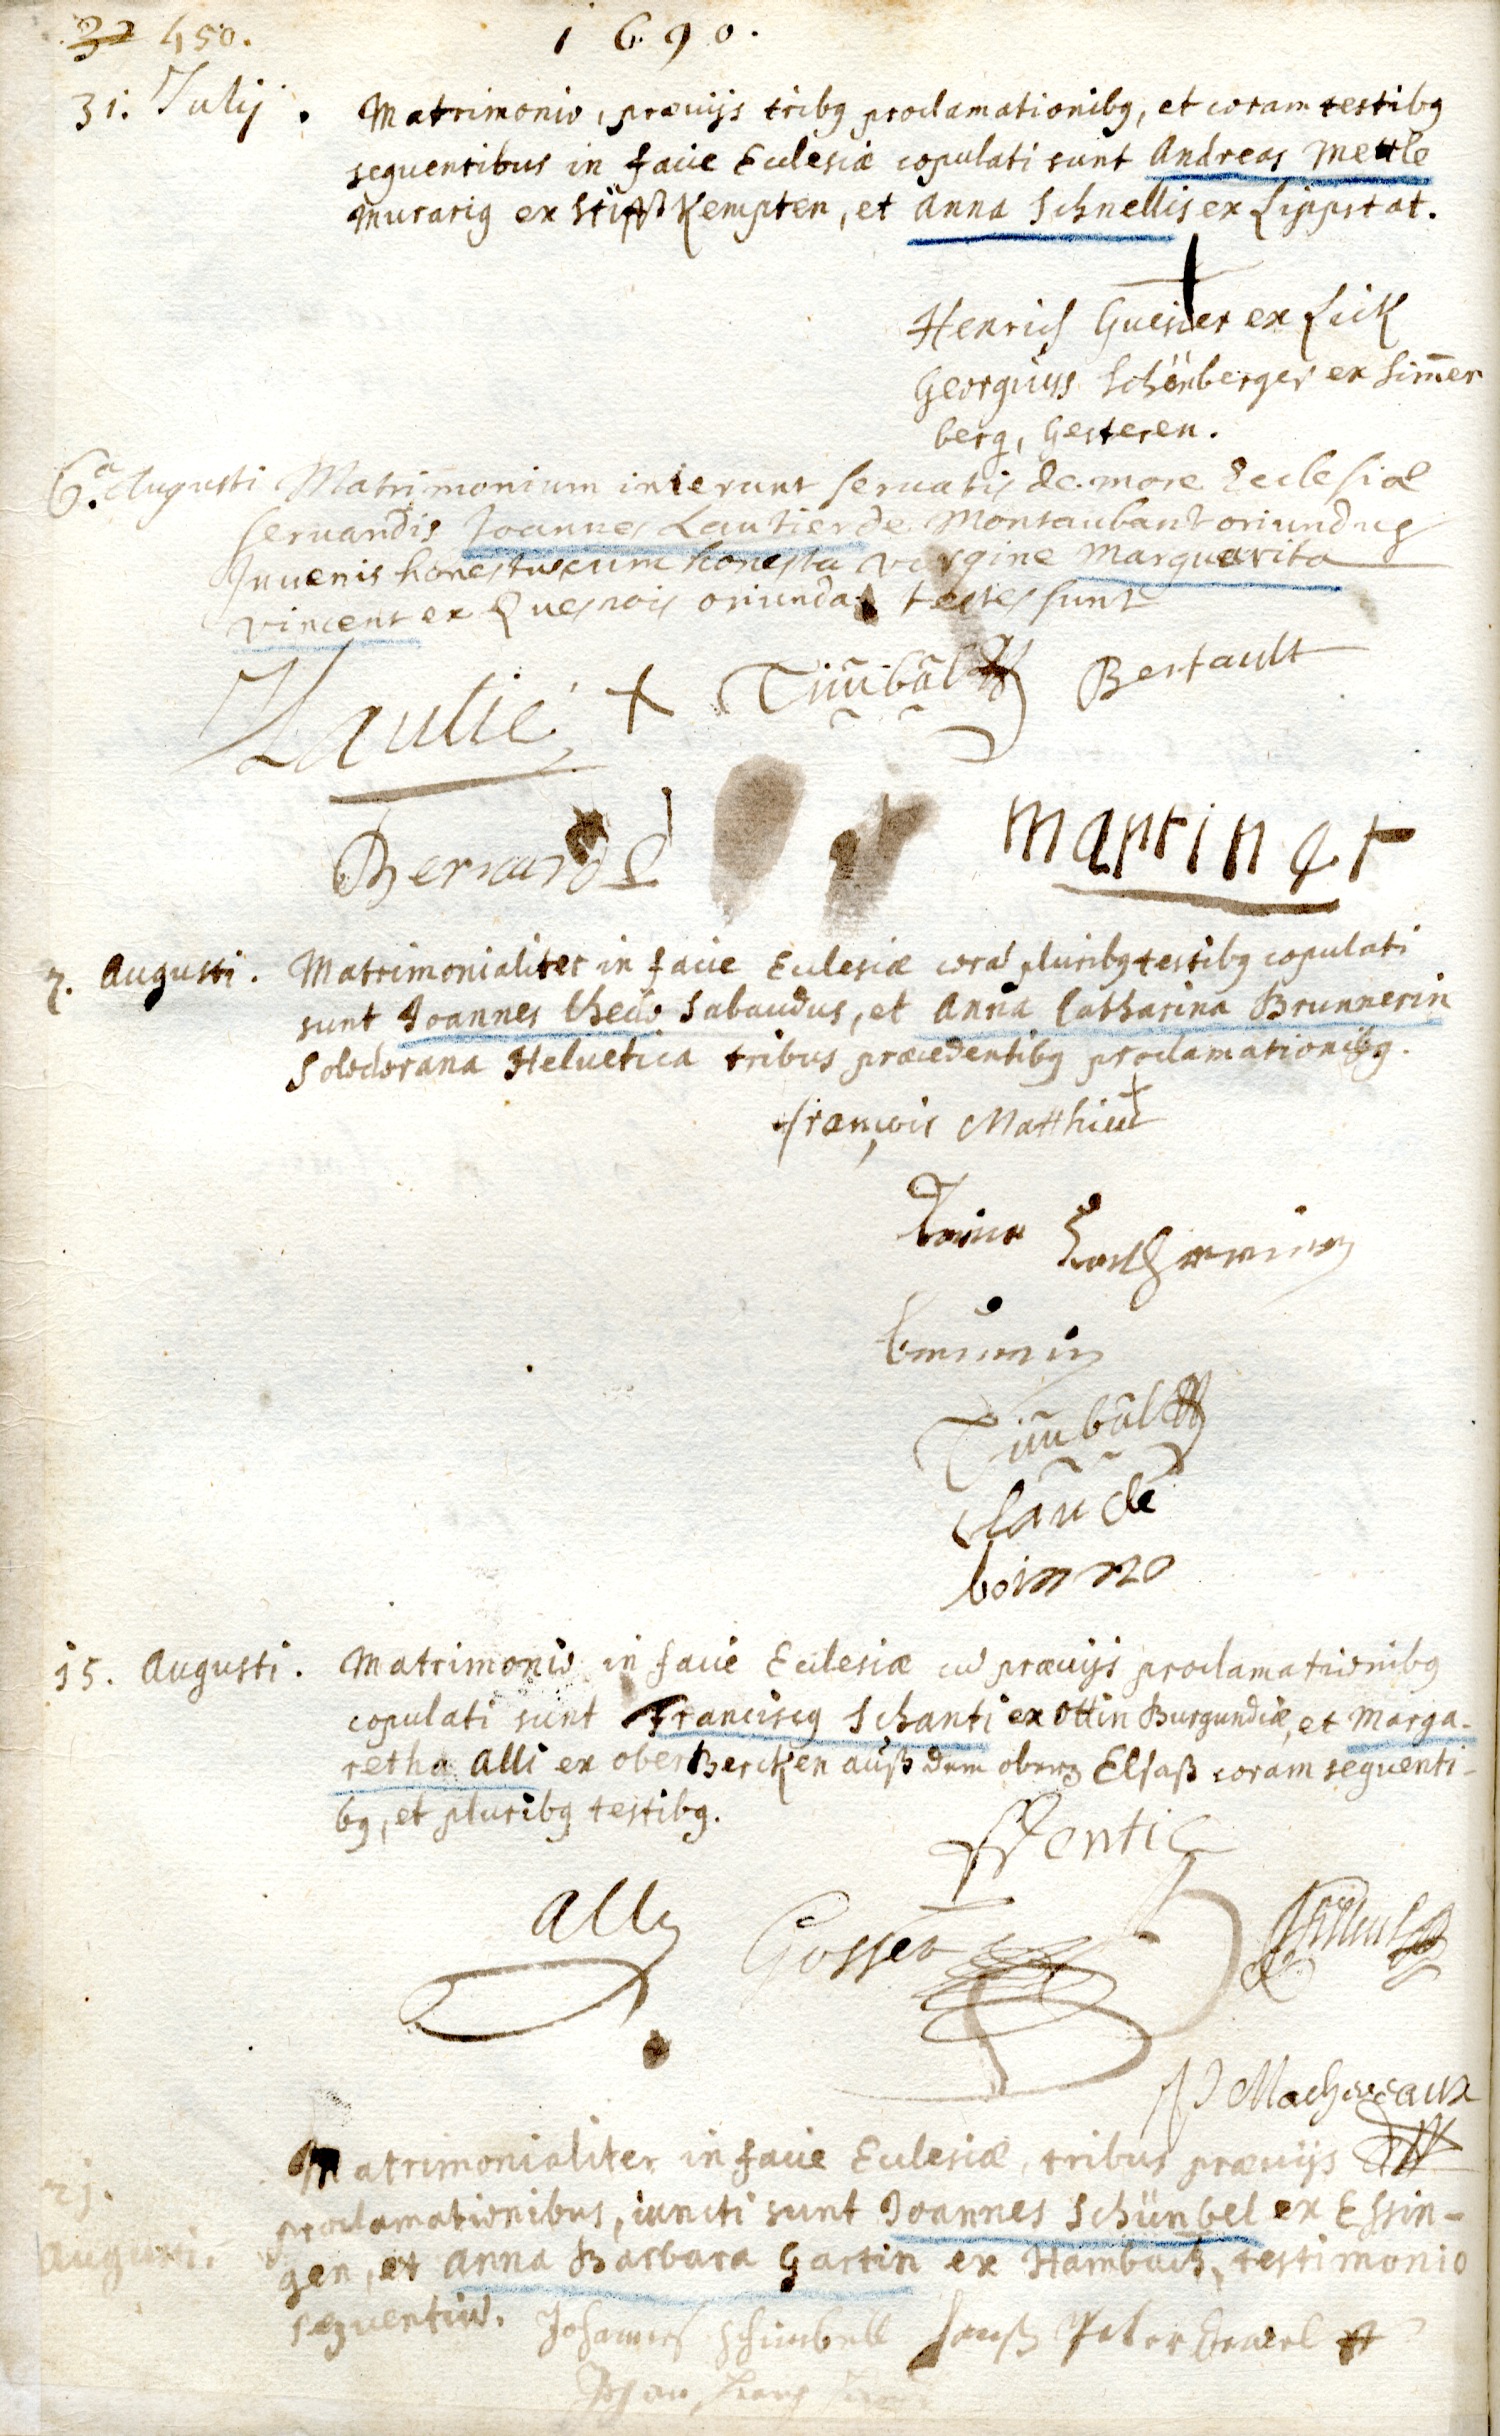 32 450. 1690.
31. Julij. Matrimonio, præuijs tribg proclamationibg, et coram testibg
sequentibus in facie Ecclesiæ copulati sunt Andreas Mettle
murarig ex Stifft Kempten, et Anna Schnellis ex Lippstat.
Henrich Guesler ex Lick
Georguys Schönberger ex Sim̄er
berg, Gesteren.
6.a Augusti Matrimonium inierunt seruatis de more Ecclesiæ
seruandis Joannes Lautier de Montaubant oriundus
Juuenis honestus cum honesta virgine Marguarita
vincent ex Quesnois oriunda testes sunt
Lautié + Bertault
Bernard
martin
7. Augusti. Matrimonialiter in facie Ecclesiæ corā pluribg testibg copulati
sunt Joannes Sabaudus, et Anna Catharina Brunnerin
Solodorana Heluetica tribus præcedentibg proclamationibg.
françois Matthieu
claude
15. Augusti. Matrimonio in facie Ecclesiæ cū præuijs proclamationibg
copulati sunt Franciscg Schanti ex Ottin Burgundiæ, et Marga-
retha Alli ex oberBercken auß dem obern Elsaß coram sequenti-
bg, et pluribg testibg.
ally Gosser
Machereaux
21. Matrimonialiter in facie Ecclesiæ, tribus præuijs
Augusti. proclamationibus, iuncti sunt Joannes Schünbel ex Essin-
gen, et Anna Barbara Gartin ex Hambach, testimonio
sequentiū. Johannes Schünbell Hanß Peter
Johan